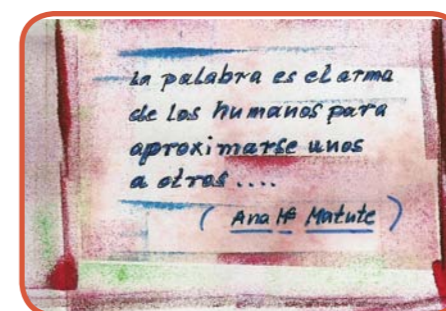 La palabra es el arma
de los humanos para
aproximarse unos
a otros ....
( Ana Mª Matute )